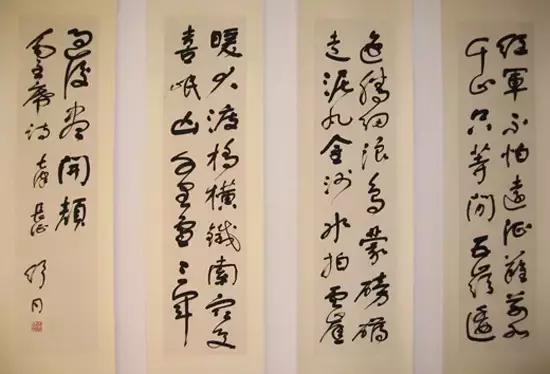 紅軍不怕遠征難萬水
千山只等間五嶺逶
迤騰細浪烏蒙磅礴
走泥丸金沙水拍雲崖
暖大渡橋橫鐵索寒更
喜岷山千里雪三軍
過後盡開顏
毛主席詩 七律 長征 舒同